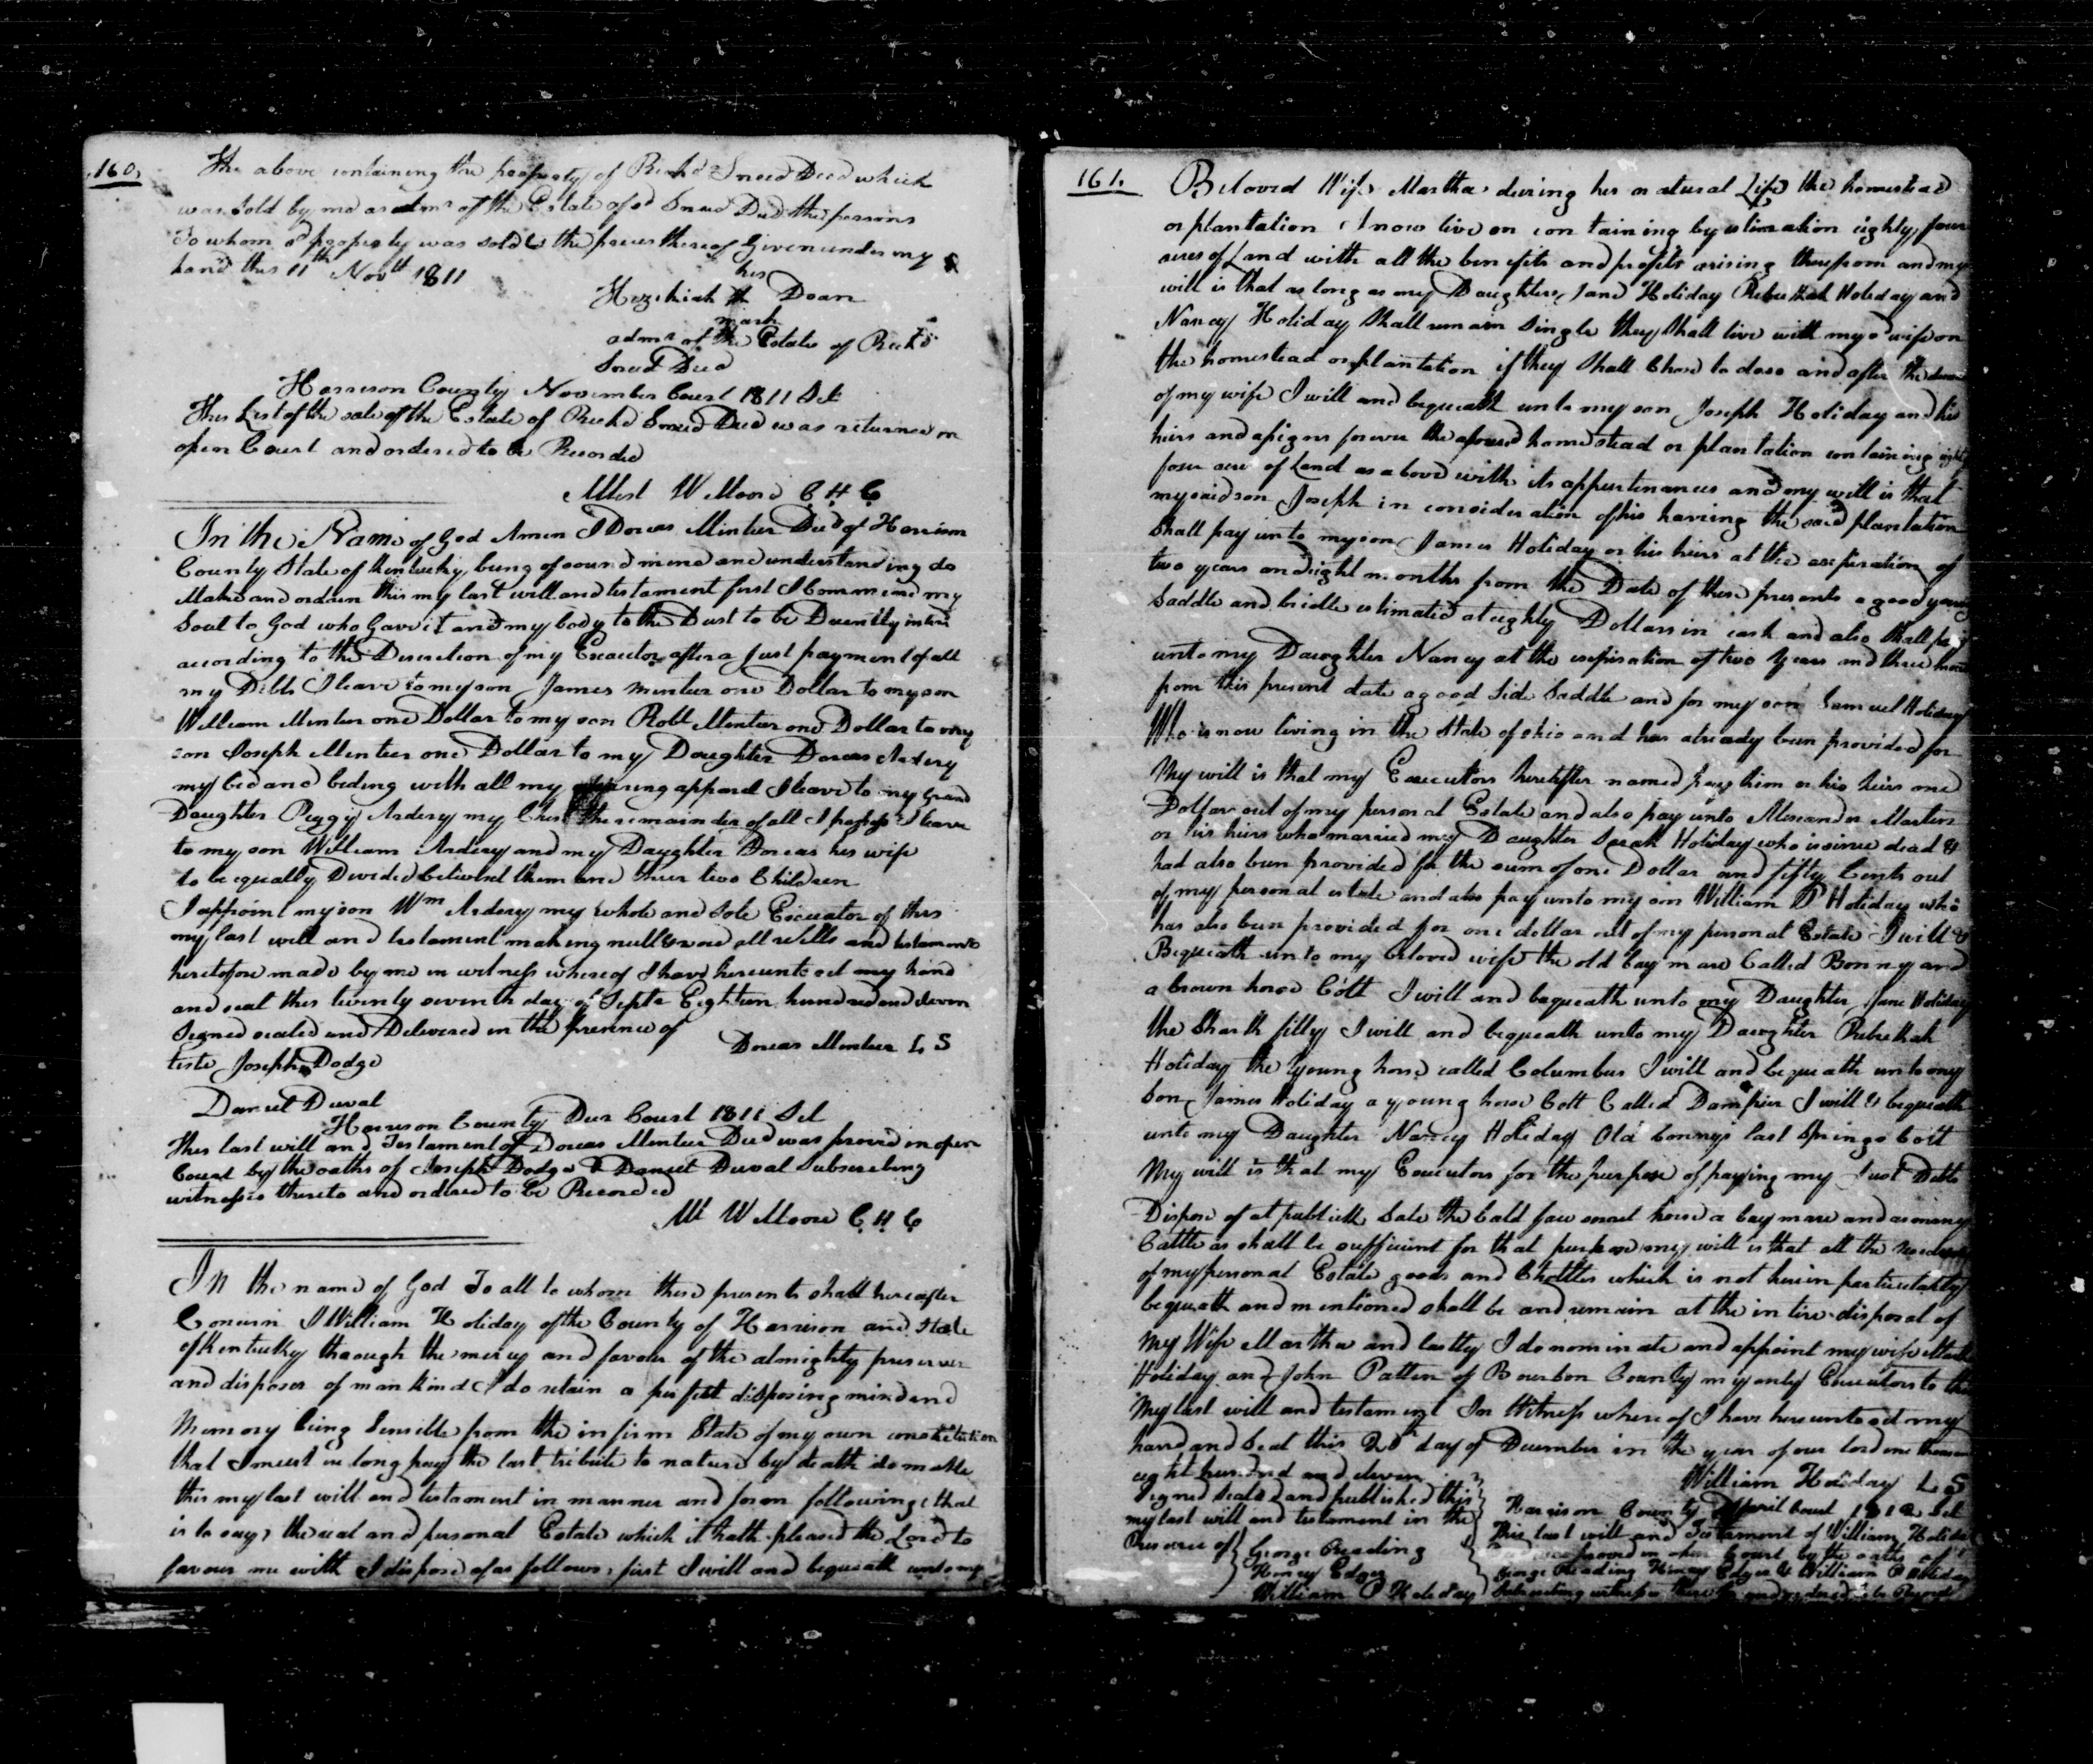 160.
The above containing the property of Richd Sneed Decd which
was sold by me as admr of the Estate of sd Sneed Decd the persons
to whom sd property was sold & the prices thereof Given under my
hand this 11th Novbr 1811
his
Hezekiah Doan
mark
admr of the Estate of Richd
Sneed Decd
Harrison County November Court 1811 Sct
This List of the sale of the Estate of Richd Sneed Decd was returned in
open Court and ordered to be Recorded
Attest W Moore C H C
In the Name of God Amen I Dorcas Minteer Decd of Harrison
County State of Kentucky being of sound mind and understanding do
Make and ordain this my last will and testament first I Commend my
Soul to God who Gave it and my body to the Dust to be Decently interd
according to the Discretion of my Executor after a Just payment of all
my Debts I leave to my son James Minteer one Dollar to my son
William Minteer one Dollar to my son Robt Minteer one Dollar to my
son Joseph Minteer one Dollar to my Daughter Dorcas Ardery
my bed and beding with all my wearing apparel I leave to my Grand
Daughter Peggy Ardery my Chest the remainder of all I possess I leave
to my son William Ardery and my Daughter Dorcas his wife
to be equally Divided between them and their two Children
I appoint my son Wm Ardery my whole and sole Executor of this
my last will and testament making null & void all wills and testaments
heretofore made by me in witness whereof I have hereunto set my hand
and seal this twenty seventh day of Septr Eighteen hundred and eleven
Signed sealed and Delivered in the presence of
Dorcas Minteer L S
teste Joseph Dodge
Daniel Duval
Harrison County Decr Court 1811 Sct
This last will and Testament of Dorcas Minteer Decd was proved in open
Court by the oaths of Joseph Dodge & Daniel Duval Subscribing
witnesses thereto and ordered to be Recorded
Att W Moore C H C
In the name of God To all to whom these presents shall hereafter
Concern I William Holiday of the County of Harrison and State
of Kentucky through the mercy and favour of the almighty preserver
and disposer of mankind I do retain a perfect disposing mind and
Memory being Sensible from the infirm State of my own constitution
that I must ere long pay the last tribute to nature by death do make
this my last will and testament in manner and form following that
is to say, the real and personal Estate which it hath pleased the Lord to
favour me with I dispose of as follows, first I will and bequeath unto my
161.
Beloved Wife Martha during her natural Life the homestead
or plantation I now live on containing by estimation eighty four
acres of Land with all the benefits and profits arising therefrom and my
will is that as long as my Daughters Jane Holiday Rebeckah Holiday and
Nancy Holiday shall remain Single they shall live with my sd wife on
the homestead or plantation if they shall Chose to do so and after the decease
of my wife I will and bequeath unto my son Joseph Holiday and his
heirs and assigns forever the aforesd homestead or plantation containing eighty
four acres of Land as above with its appurtenances and my will is that
my said son Joseph in consideration of his having the said plantation
Shall pay unto my son James Holiday or his heirs at the expiration of
two years and eight months from the Date of these presents a good young
Saddle and bridle estimated at eighty Dollars in cash and also shall pay
unto my Daughter Nancy at the expiration of two Years and three months
from this present date a good Side Saddle and for my son Samuel Holiday
Who is now living in the State of ohio and has already been provided for
My will is that my Executors hereafter named pay him or his heirs one
Dollar out of my personal Estate and also pay unto Alexander Martin
or his heirs who married my Daughter Sarah Holiday who is since dead &
had also been provided for the sum of one Dollar and fifty Cents out
of my personal estate and also pay unto my son William P Holiday who
has also been provided for one dollar out of my personal Estate I will &
Bequeath unto my beloved wife the old bay mare Called Bonny and
a brown horse Colt I will and bequeath unto my Daughter Jane Holiday
the Shark filly I will and bequeath unto my Daughter Rebeckah
Holiday the Young horse called Columbus I will and bequeath unto my
Son James Holiday a young horse Colt Called Dampier I will & bequeath
unto my Daughter Nancy Holiday Old bonnys last Springs Colt
My will is that my Executors for the purpose of paying my Just Debts
Dispose of at publick Sale the bald face sorrel horse a bay mare and as many
Cattle as shall be sufficient for that purpose my will is that all the
of my personal Estate goods and Chattles which is not herein particularly
bequeath and mentioned shall be and remain at the intire disposal of
My Wife Martha and lastly I do nominate and appoint my wife Martha
Holiday and John Patten of Bourbon County my only Executors to this
My last will and testament In Witness whereof I have hereunto set my
hand and Seal this day of December in the year of our lord one thousand
eight hundred and eleven
William Holiday L S
Signed Sealed and published this
my last will and testament in the
Presence of
George Reading
Henry Edger
William P Holiday
Harrison County April Court 1812 Sct
This last will and Testament of William Holiday
was proved in open Court by the oaths of
George Reading Henry Edger & William P Holiday
Subscribing witnesses thereto and ordered to be Record